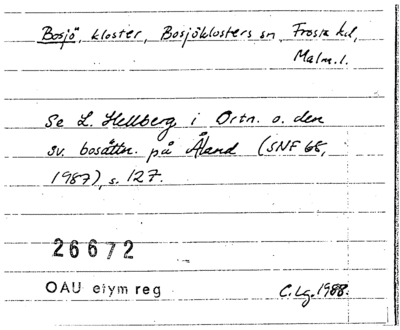 Bosjö, kloster, Bosjöklosters sn, Frosta hd,
Malm.l.
Se L. Hellberg i Ortn. o. den
sv. bosättn. på Åland (SNF 68,
1987), s. 127.
26672
OAU etym reg
C.Lg. 1988.